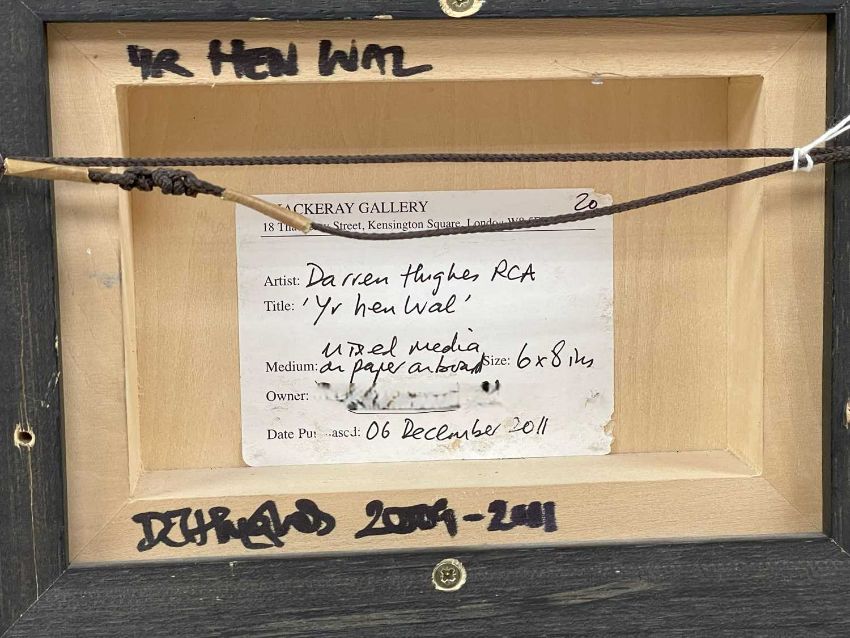 YR HEN WAL
THACKERAY GALLERY 20
18 Street, Kensington Square, London W8
Artist: Darren Hughes RCA
Title: 'Yr hen Wal'
mixed media
Medium: on paper on board Size: 6x8 ins
Owner:
Date Purchased: 06 December 2011
2009-2011